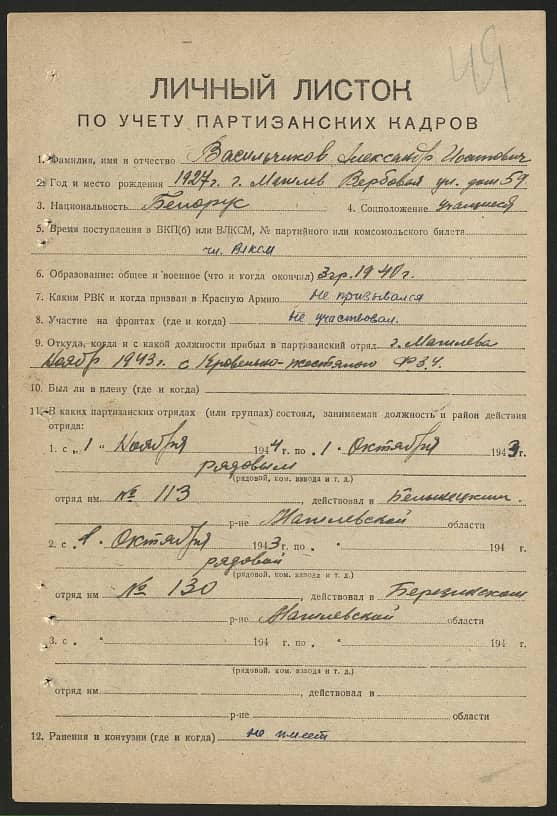 49
ЛИЧНЫЙ ЛИСТОК
ПО УЧЕТУ ПАРТИЗАНСКИХ КАДРОВ
1. Фамилия, имя и отчество Васильчиков Александр
2. Год и место рождения 1927 г. г. Магилев Вербовая ул. дом 59
3. Национальность Белорус 4. Соцположение учащиеся
5. Время поступления в ВКП(б) или ВЛКСМ, № партийного или комсомольского билета
чл. влксм
6. Образование: общее и военное (что и когда окончил) 3 гр. 1940 г.
7. Каким РВК и когда призван в Красную Армию не призывался
8. Участие на фронтах (где и когда) не участвовал.
9. Откуда, когда и с какой должности прибыл в партизанский отряд г. Магилева
Ноябр 1943 г. с Кровельно-жостяного ФЗУ.
10. Был ли в плену (где и когда)
11. В каких партизанских отрядах (или группах) состоял, занимаемая должность и район действия
отряда:
1. с „1" Ноября 1944 г. по „1. Октября 1943 г.
рядовым
(рядовой, ком. взвода и т. д.)
отряд им. № 113, действовал в Белыницким
р-не Магилевской области
2. с „1. Октября 1943 г. по „ " 194 г.
рядовой
(рядовой, ком. взвода и т. д.)
отряд им № 130, действовал в Березинском
р-не Магилевской области
3. с „ " 194 г. по „ " 194 г.
(рядовой, ком. взвода и т. д.)
отряд им, действовал в
р-не области
12. Ранения и контузии (где и когда) не имеет